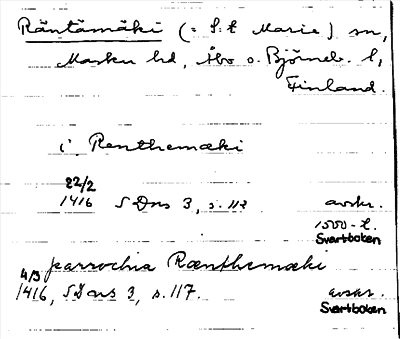 Räntämäki (= S:t Marie) sn,
Masku hd, Åbo o. Björneb. l,
Finland.
i Renthemæki
22/2
1416 SDns 3, s. 112 avskr.
1500-t.
Svartboken
parrochia Rænthemæki
4/3
1416, SDns 3, s. 117. avskr.
Svartboken